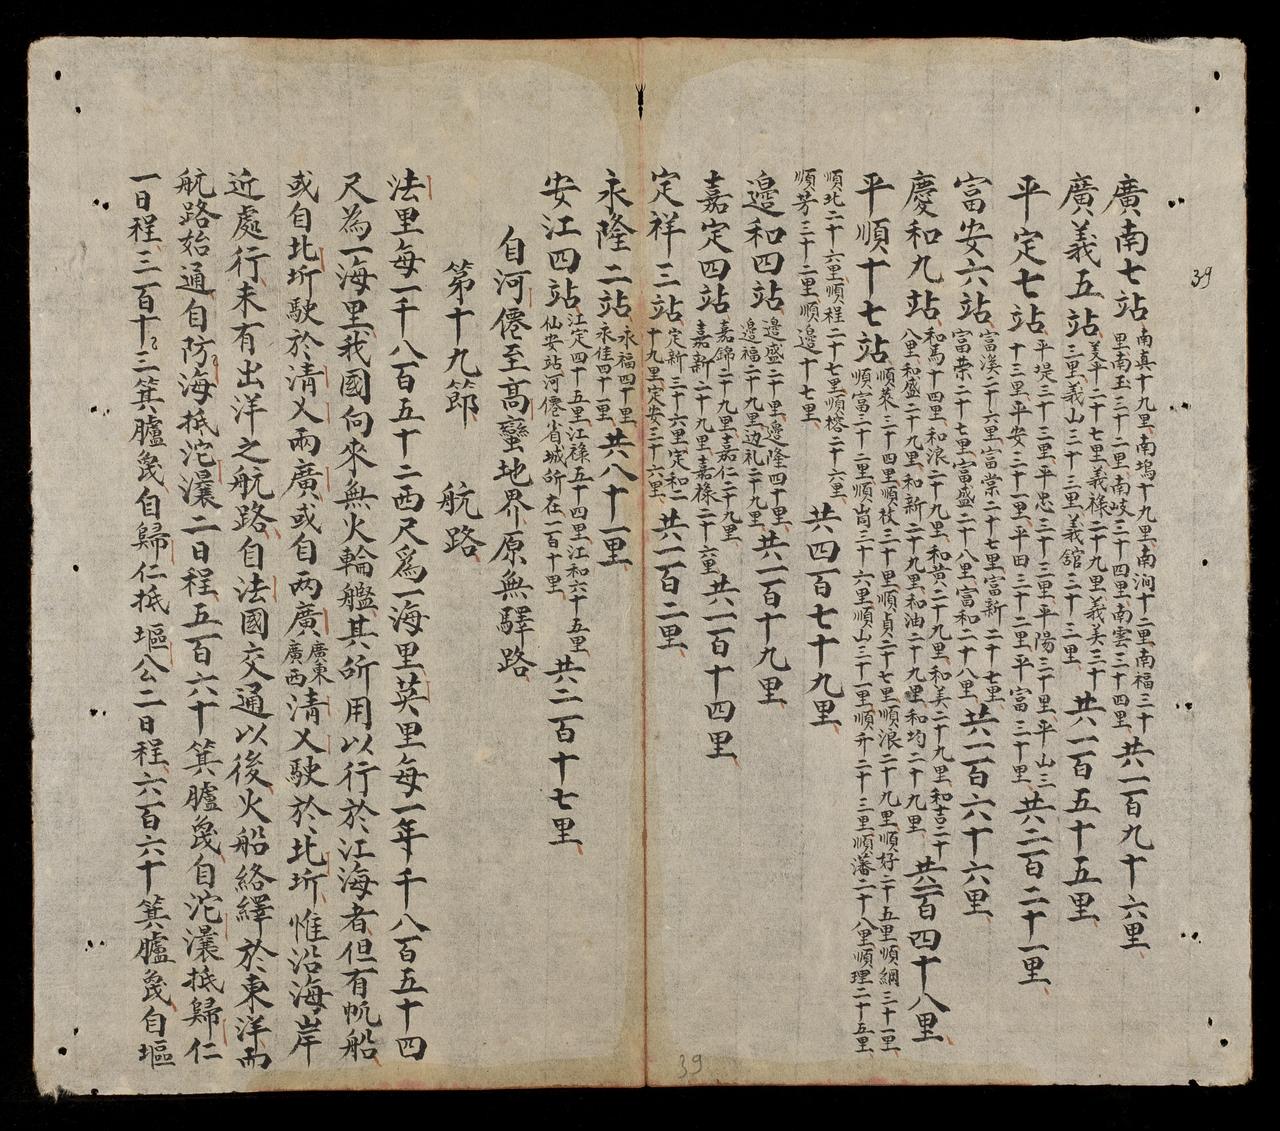 廣南七站南真十九里南塢十九里南涧十二里南福三十里南玉三十二里南岐三十四里南雲三十四里共一百九十六里
廣義五站義平二十七里義祿二十九里義美三十三里義山三十三里義舘三十三里共一百五十五里
平定七站平堤三十三里平忠三十三里平陽三十里平山三十三里平安三十一里平田三十二里平富三十里共二百二十一里
富安六站富溪二十六里富棠二十七里富新二十七里富荣二十七里富盛二十八里富和二十八里共一百六十六里
慶和九站和馬十四里和浪二十九里和黄二十九里和美二十九里和吉二十八里和盛二十九里和新二十九里和油二十九里和均二十九里共二百四十八里
平順十七站順萊三十四里順枝三十里順貞二十七里順浪二十九里順好二十五里順綱三十一里順富三十二里順崗三十六里順山三十一里順升二十三里順藩二十八里順理二十五里
順北二十六里順程二十七里順榕二十六里順芳三十二里順邉十七里共四百七十九里
邉和四站邉盛二十里邉隆四十里邉福二十九里边礼二十九里共一百十九里
嘉定四站嘉錦二十九里嘉仁二十九里嘉新二十九里嘉祿二十六里共一百十四里
定祥三站定新三十六里定和二十九里定安三十六里共一百二里
永隆二站永福四十里永佳四十一里共八十一里
安江四站江定四十五里江祿五十四里江和六十五里仙安站河僊省城所在一百十里共二百十七里
自河僊至高蠻地界原無驛路
第十九節 航路
法里每一千八百五十二西尺爲一海里英里每一年千八百五十四
尺為一海里我國向來無火輪艦其所用以行於江海者但有帆船
或自北圻駛於清乂兩廣或自两廣廣東廣西清乂駛於北圻惟沿海岸
近處行未有出洋之航路自法國交通以後火船絡繹於東洋而
航路始通自防海抵沱㶞二日程五百六十箕臚𠼦自沱㶞抵歸仁
一日程三百十三箕臚𠼦自歸仁抵塸公二日程六百六十箕臚𠼦自塸
39
39